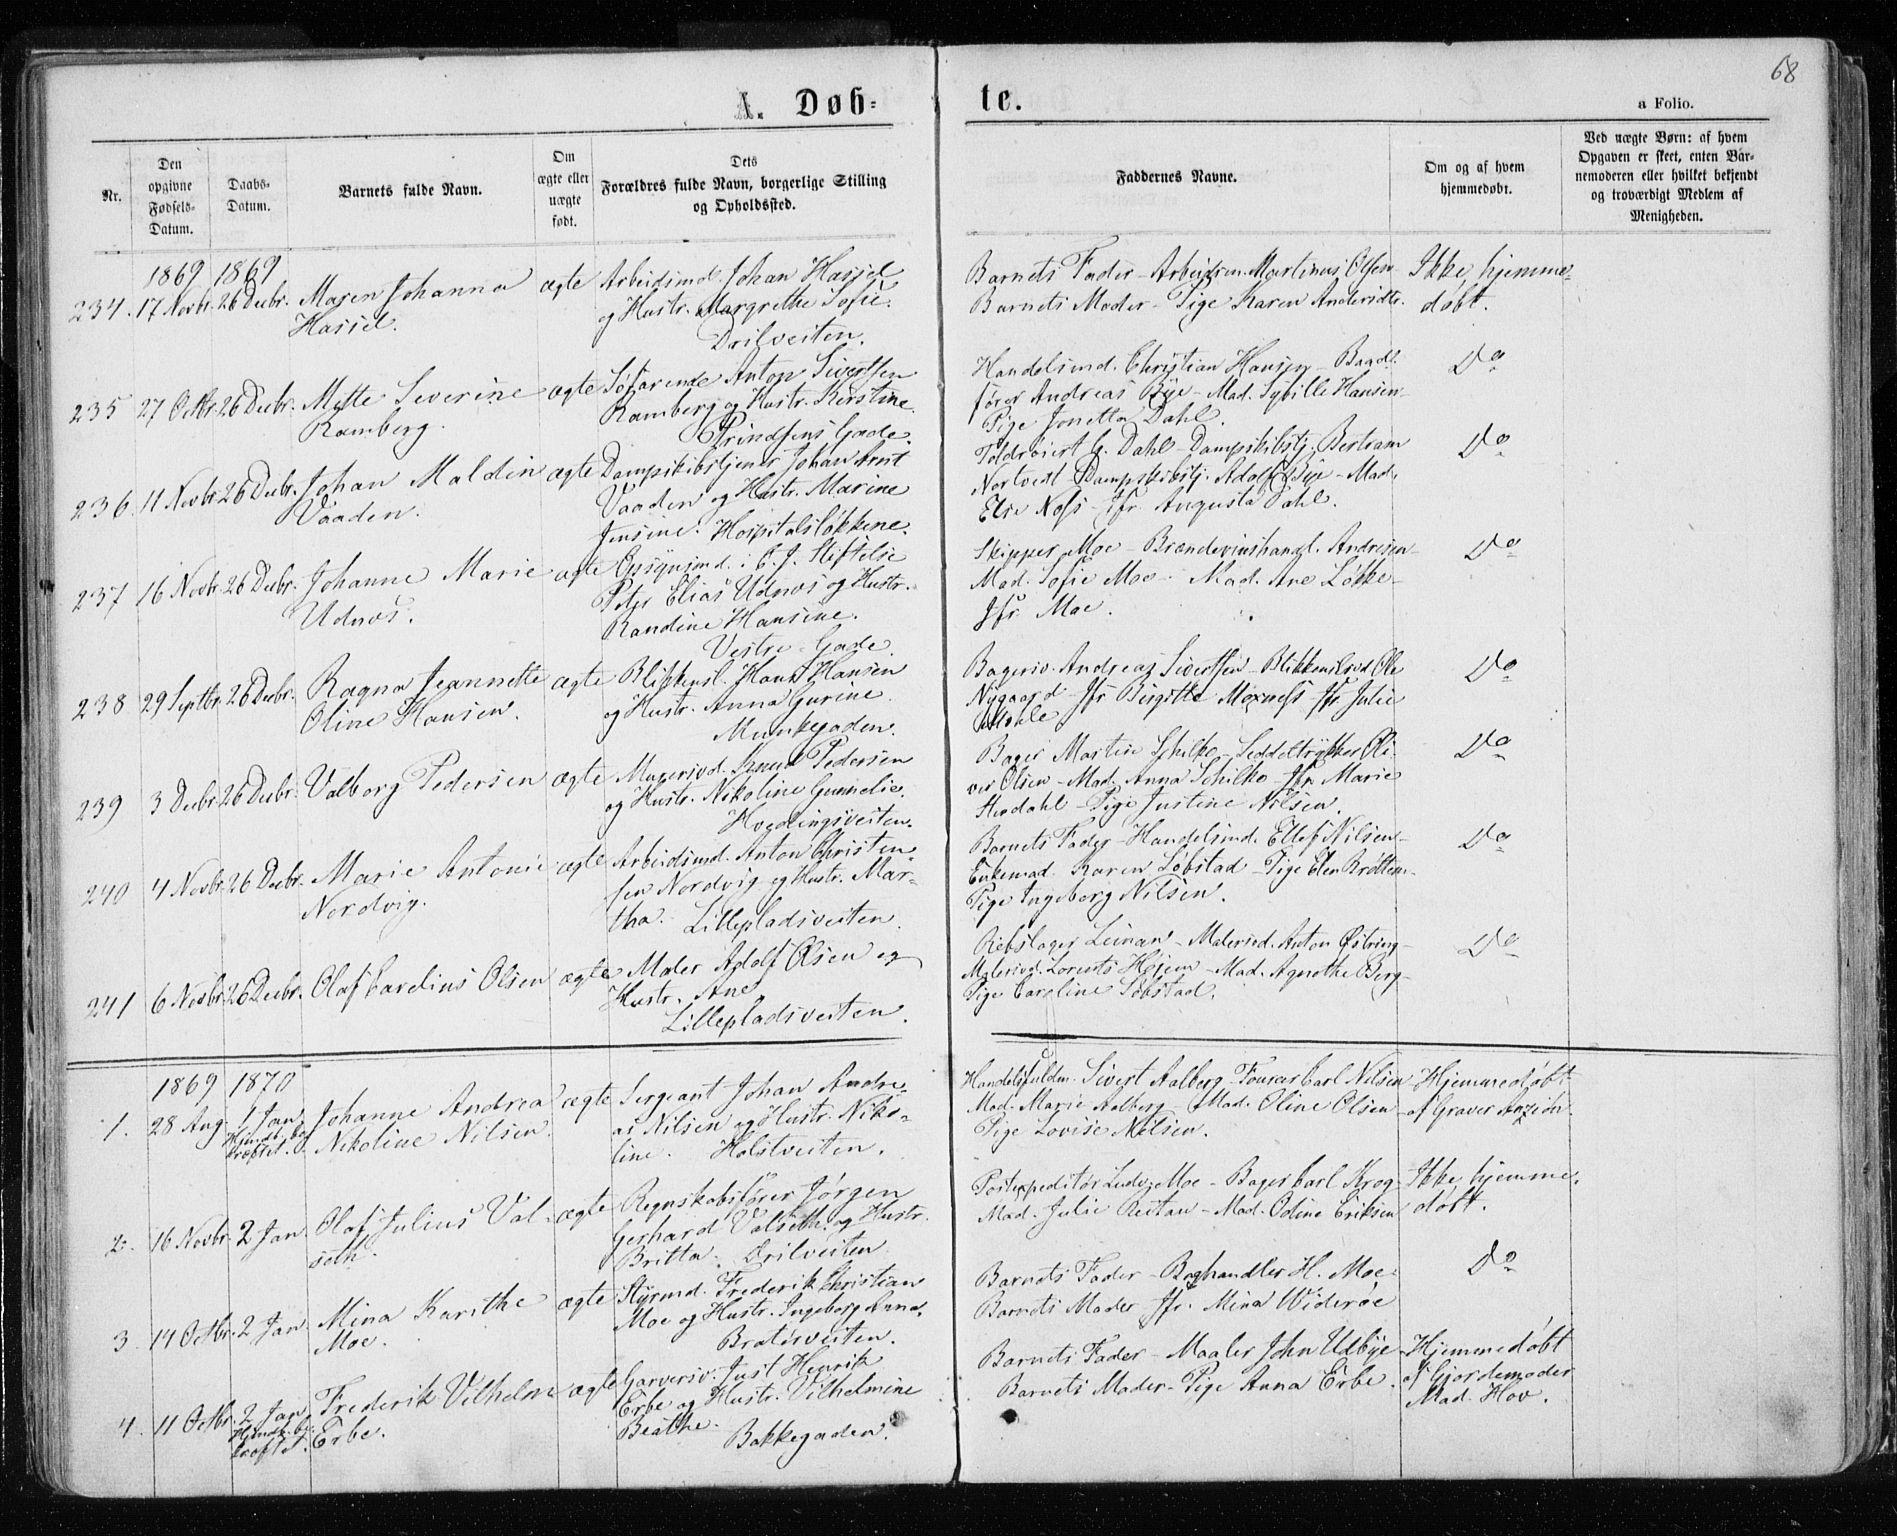 68
A. Døb-
te.
a Folio.
Nr.
Den
opgivne
Fødsels-
Datum.
Daabs-
Datum.
Barnets fulde Navn.
Om
ægte eller
uægte
født.
Dets
Forældres fulde Navn, borgerlige Stilling
og Opholdssted.
Faddernes Navne.
Om og af hvem
hjemmedøbt.
Ved uægte Børn: af hvem
Opgaven er skeet, enten Bar-
nemoderen eller hvilket bekjendt
og troværdigt Medlem af
Menigheden.
1869 1869
234. 17 Novbr. 26 Decbr. Maren Johanna ægte Arbeidsmd. Johan Hassel
Hassel. og Hustr. Margrethe Sofie.
Drilveiten.
Barnets Fader - Arbeidsm. Martinus Olsen Ikke hjemme-
Barnets Moder - Pige Karen Andersdtr. døbt.
235 27 Octbr. 26 Decbr. Mette Severine ægte Søfarende Anton Sivertsen
Ramberg. Ramberg og Hustr. Kerstine.
Prindsens Gade.
Handelsmd. Christian Hansen - Do
fører Andreas Bye - Mad. Sybille Hansen -
Pige Jonetta Dahl.
236. 11 Novbr. 26 Decbr. Johan Maldin ægte Dampskibstjener Johan Arnt
Vaaden. Vaaden og Hustr. Marine
Jensine. Hospitalsløkkene.
G. Dahl - Dampskibstj. Bertram Do
Nortvedt - Dampskibstj. Adolf Bye - Mad.
Else Noss - Jfr. Augusta Dahl.
237 16 Novbr. 26 Decbr. Johanne Marie ægte Opsynsmd. i E. J. Stiftelse
Udnæs. Peter Elias Udnæs og Hustr.
Randine Hansine.
Vestre Gade.
Skipper Moe - Brændevinshandl. Andresen - Do
Mad. Sofie Moe - Mad. Ane Løkke -
Jfr. Moe.
238 29 Septbr. 26 Decbr. Ragna Jeannette ægte Blikkensl. Hans Hansen
Oline Hansen. og Hustr. Anna Gurine.
Munkegaden.
Bagersv. Andreas Sivertsen - Blikkenslsvd. Ole Do
Nygaard - Jfr. Birgitte Moxness Jfr. Julie
239 3 Decbr. 26 Decbr. Valborg Pedersen ægte Malersvd. Knud Pedersen
og Hustr. Nikoline Gunnelie.
Hvedingsveiten.
Bager Martin Schilke - Seddeltrykker Oli- Do
ver Olsen - Mad. Anna Schilke - Jfr. Marie
Pige Justine Nilsen.
240 4 Novbr. 26 Decbr. Marie Antonie ægte Arbeidsmd. Anton Christen-
Nordvig. sen Nordvig og Hustr. Mar-
tha. Lillepladsveiten.
Barnets Fader - Handelsmd. Ellef Nilsen - Do
Enkemad. Karen Løbstad - Pige Elen Brøttem -
Pige Ingeborg Nilsen.
241 6 Novbr. 26 Decbr. Olaf Carelius Olsen ægte Maler Adolf Olsen og
Hustr. Ane
Lillepladsveiten.
Rebslager Leinan - Malersvd. Anton Østring - Do
Malersvd. Lorents Hojem - Mad. Agnethe Berg -
Pige Caroline Løbstad.
1869 1870
1. 28 Aug. 1 Jan Johanne Andrea ægte Sergeant Johan Andre-
Hjmdb. be- Nikoline Nilsen. as Nilsen og Hustr. Niko-
kræftet. line. Holstveiten.
Handelsfuldm. Sivert Aalberg - Fourer Carl Nilsen Hjemmedøbt
Mad. Marie Aalberg - Mad. Oline Olsen - af Graver Anzion.
Pige Lovise Nilsen.
2. 16 Novbr. 2 Jan Olaf Julius Val- ægte Regnskabsfører Jørgen
seth. Gerhard Valseth og Hustr.
Britta. Drilveiten
Postexpeditør Ludv. Moe - Bager Carl Krog - Ikke hjemme.
Mad. Julie Restau - Mad. Odine Eriksen døbt.
3. 14 Octbr. 2 Jan Mina Karithe ægte Styrmd. Frederik Christian
Moe. Moe og Hustr. Ingeborg Anna.
Bratørveiten.
Barnets Fader - Boghandler H. Moe. Do
Barnets Moder Jfr. Mina Widerøe
4. 11 Octbr. 2 Jan Frederik Vilhelm ægte Garversv. Just Henrik
Hjmdb. be- Erbe. Erbe og Hustr. Vilhelmine
kræftet. Beathe. Bakkegaden.
Barnets Fader - Maaler John Udbye - Hjemmedøbt
Barnets Moder - Pige Anna Erbe. af Gjordemoder
Mad. Hov.